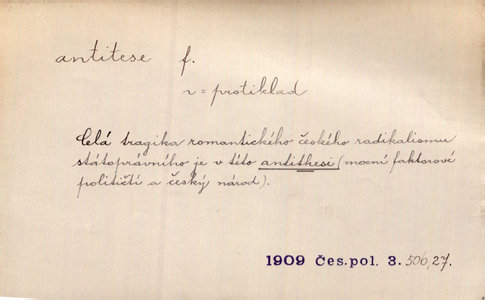 antitese f.
= protiklad
Celá tragika romantického českého radikalismu
státoprávního je v této antithesi (mocní faktorové
političtí a český národ).
1909 Čes. pol. 3. 506,27.